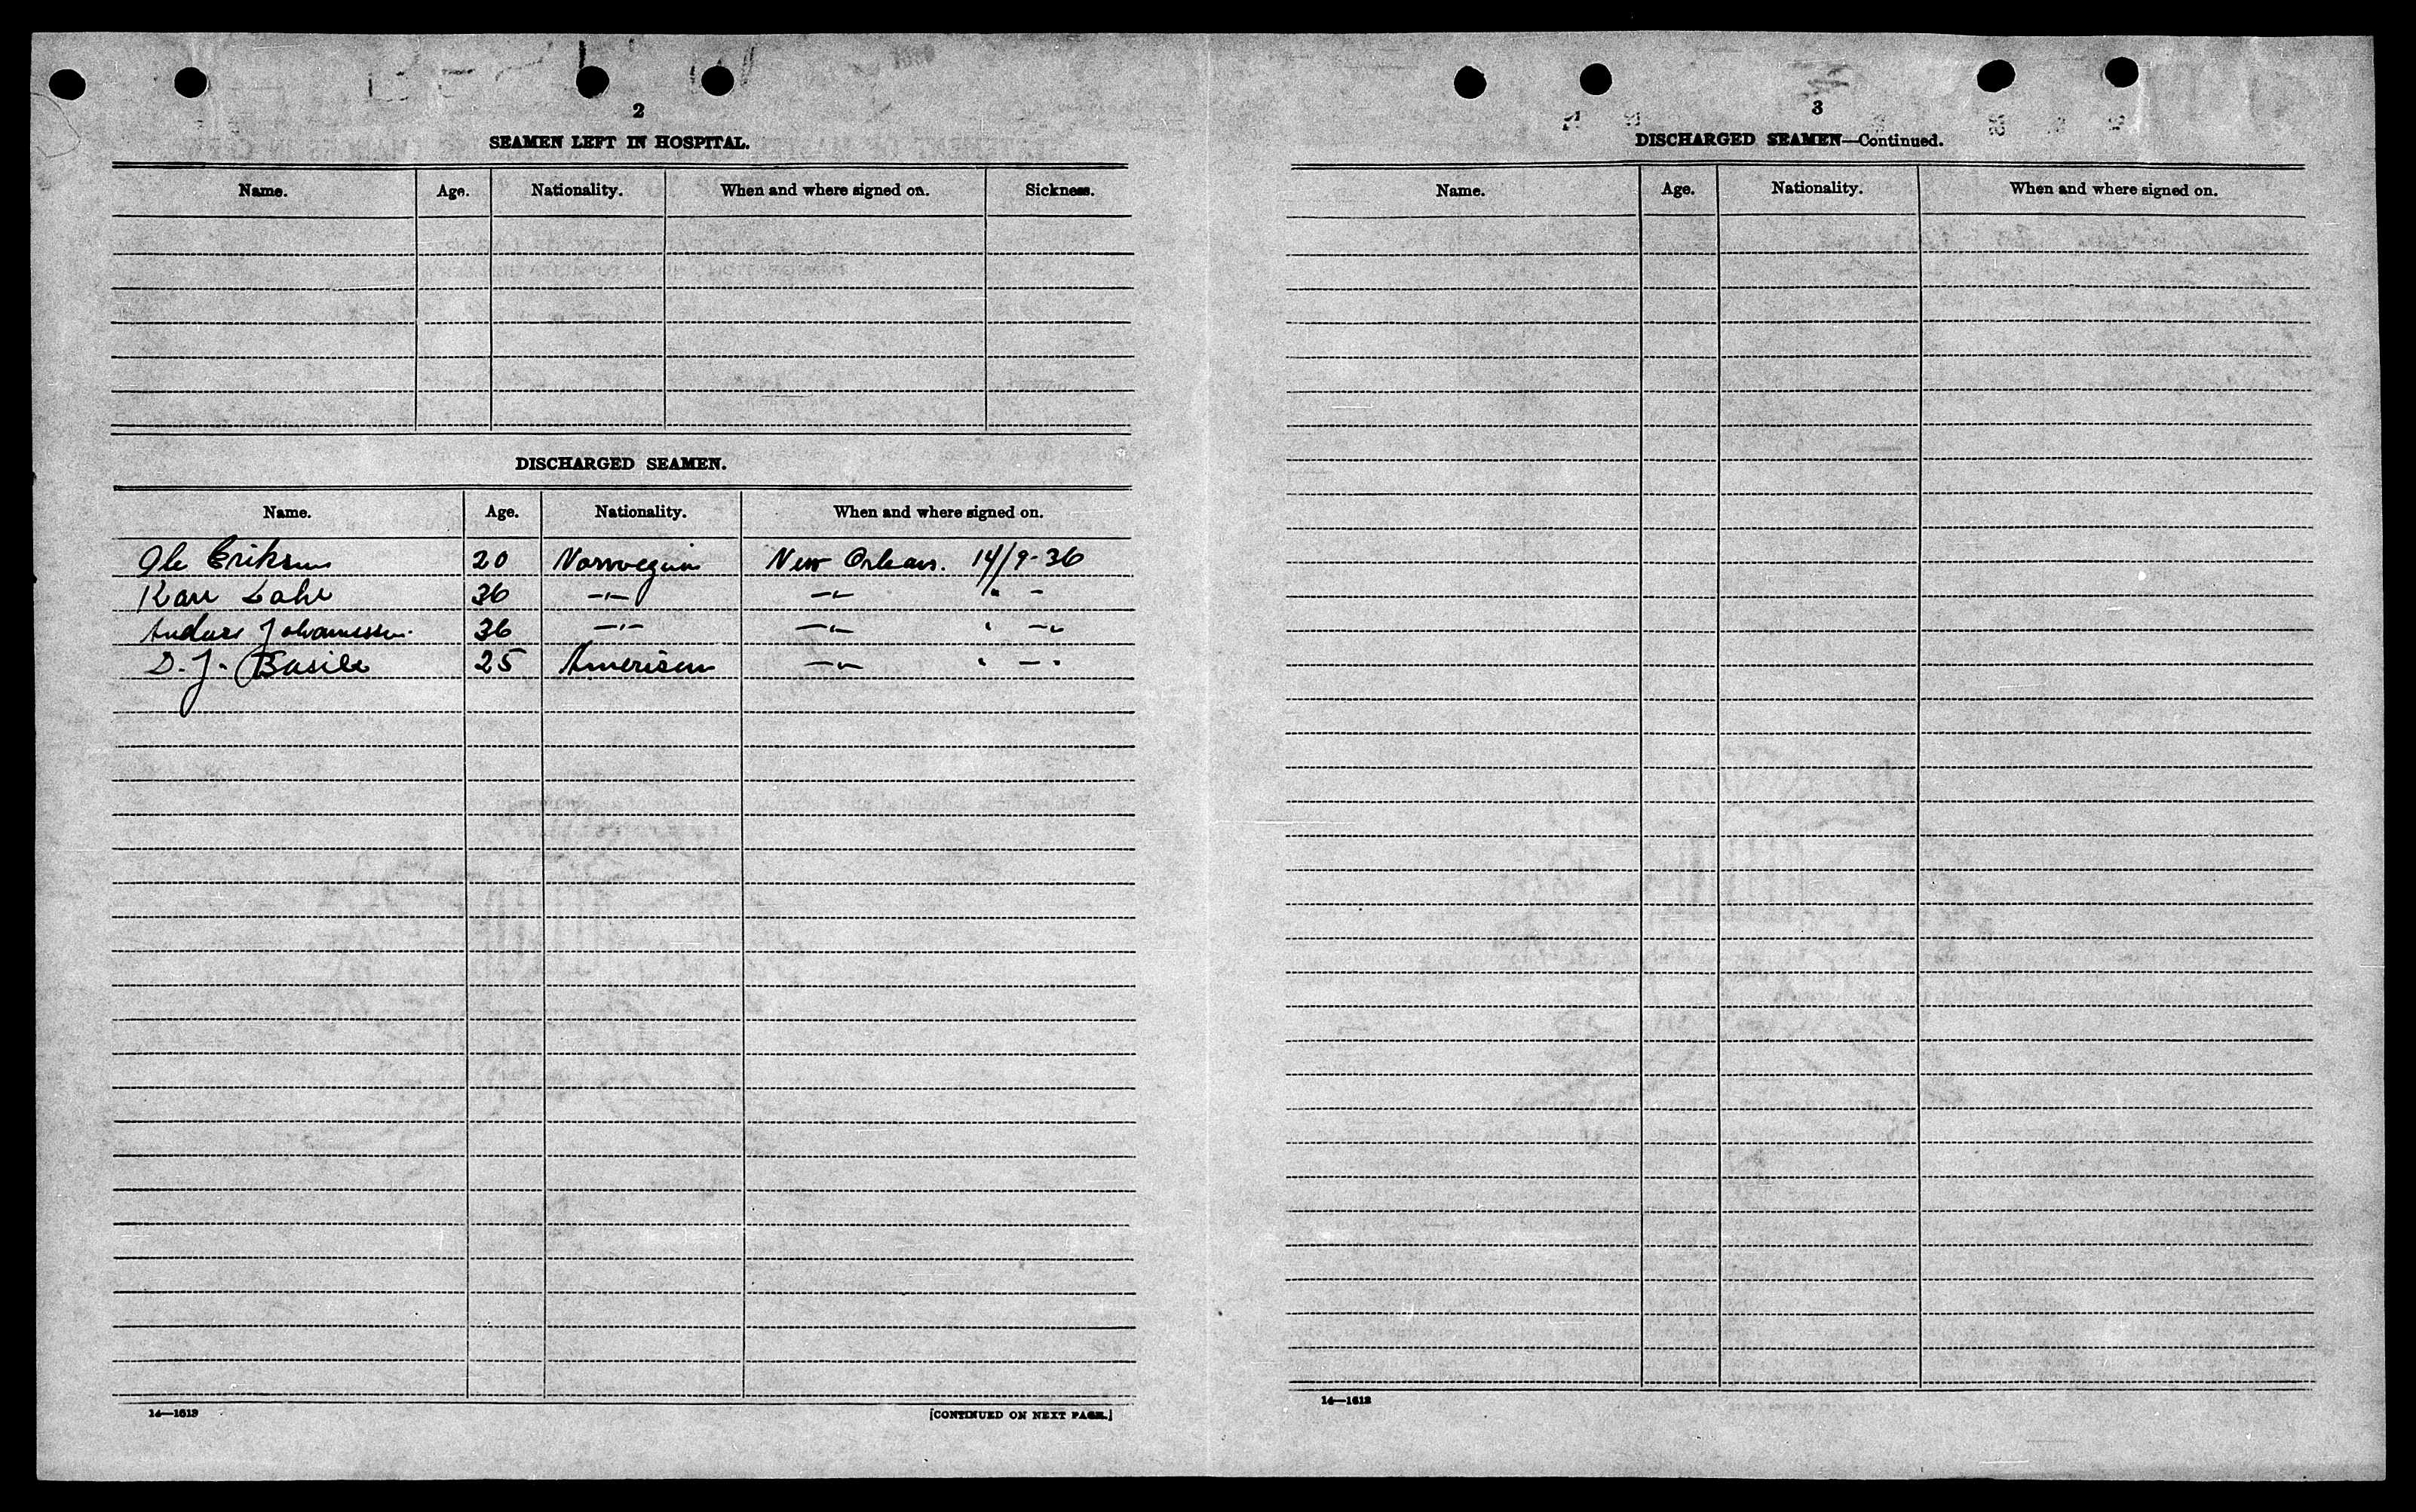 2
SEAMEN LEFT IN HOSPITAL.
Name. Age. Nationality. When and where signed on. Sickness.
DISCHARGED SEAMEN.
Name. Age. Nationality. When and where signed on.
Ole Eriksen 20 Norwegian New Orleans. 14/9-36
Kare 36 -"- -"- " -
Anders Johannessen. 36 -"- -"- " -"
D. J. Basile 25 American -"- " - "
14—1613
[CONTINUED ON NEXT PAGE.]
3
DISCHARGED SEAMEN—Continued.
Name. Age. Nationality. When and where signed on.
14—1613